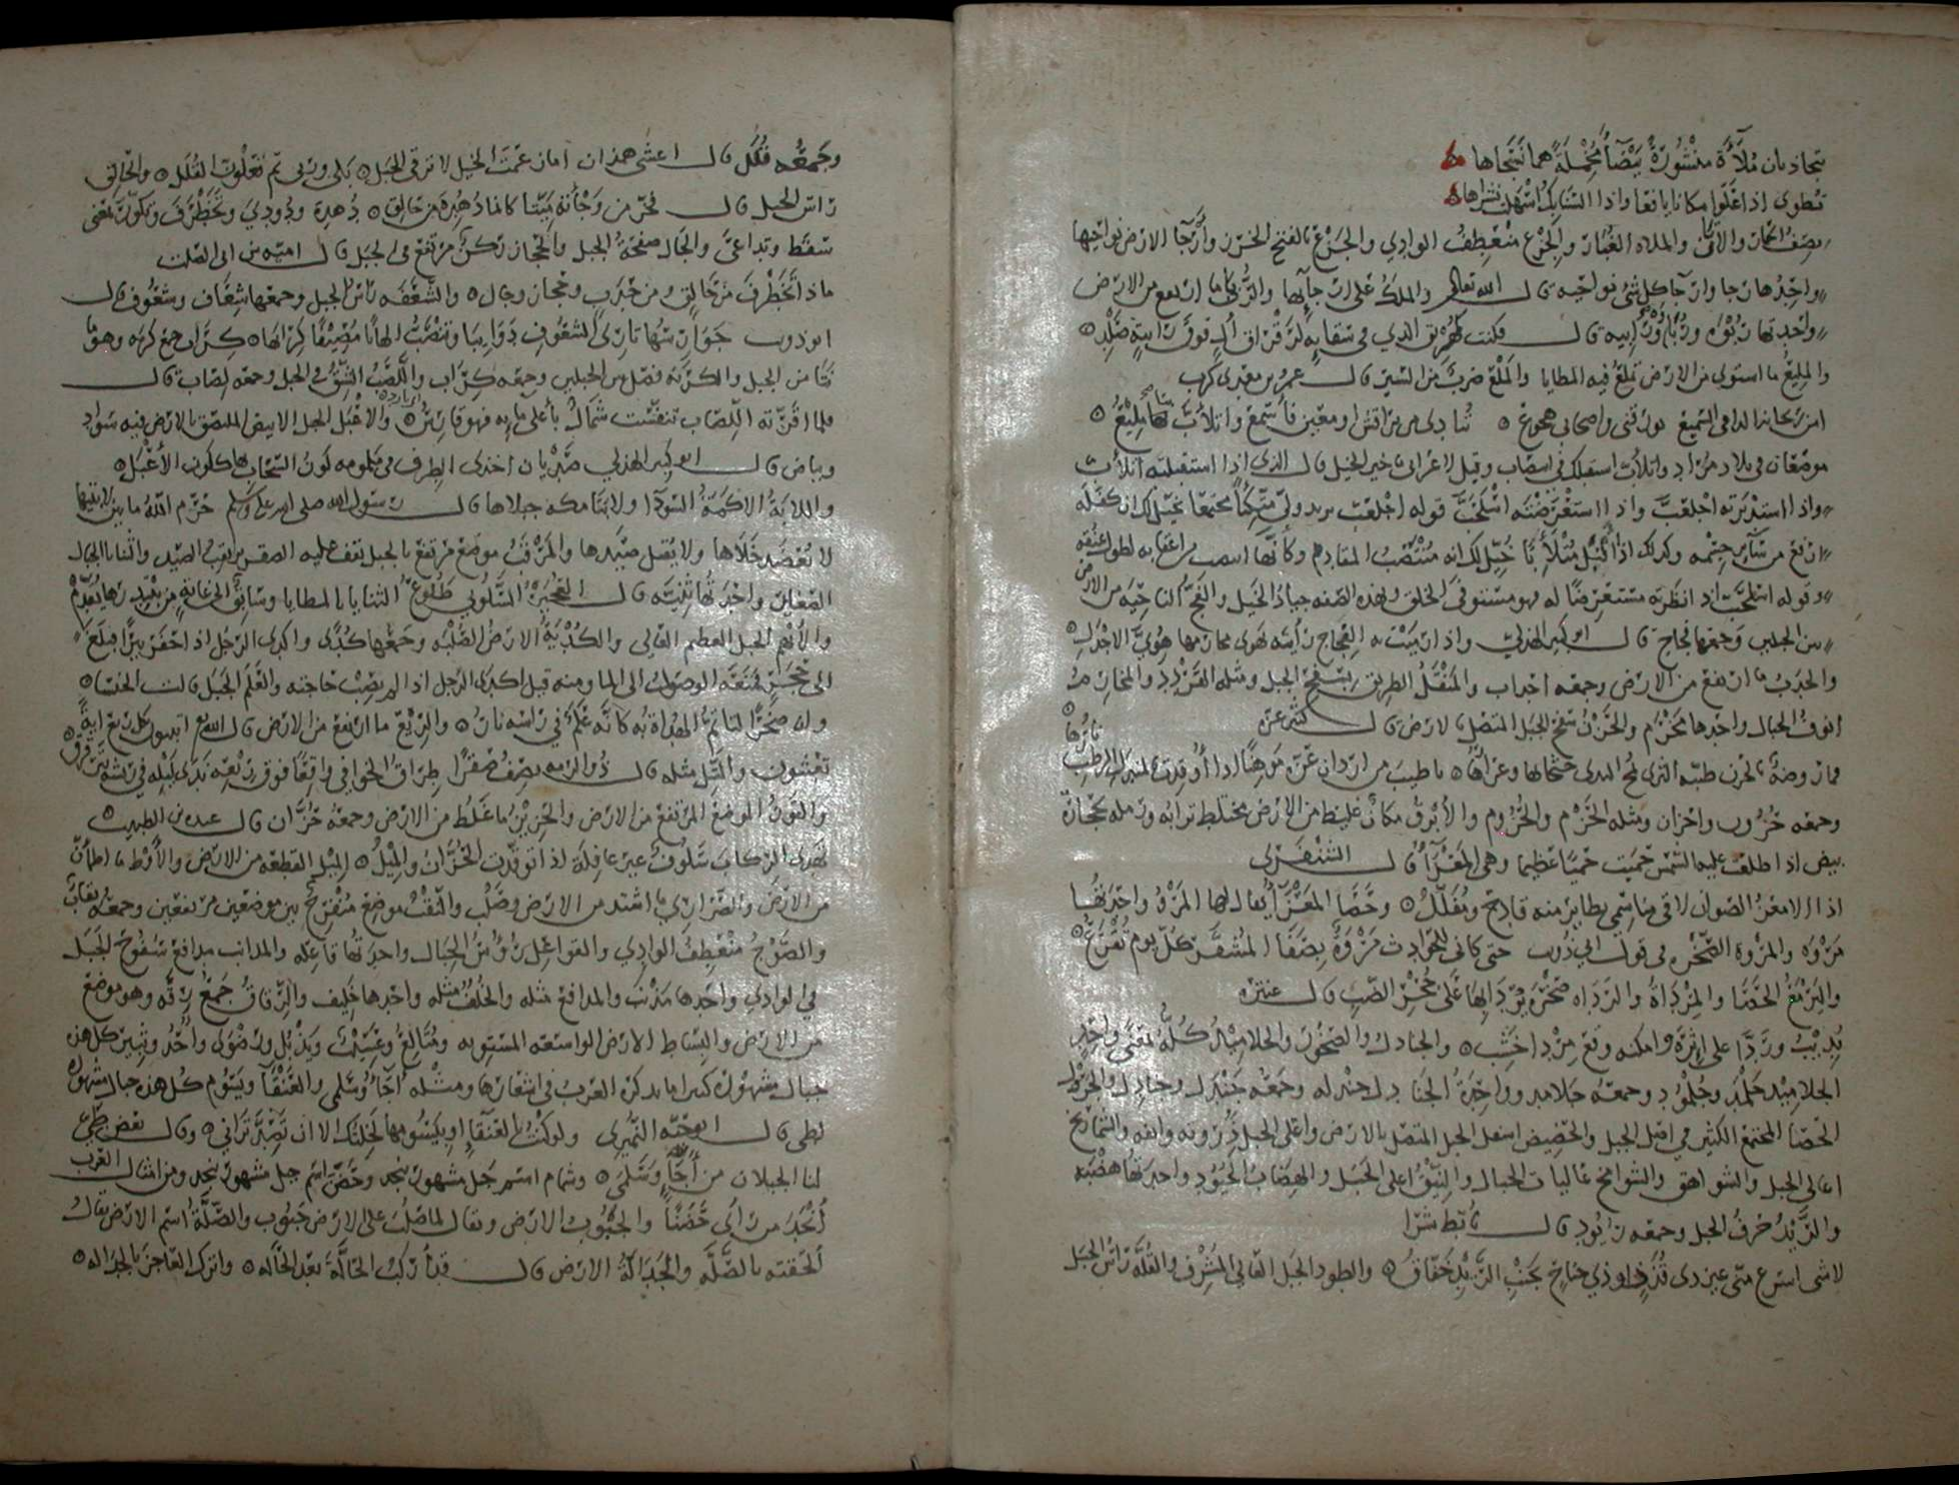 يتجاذبان ملآءة منشورة بيضآ مخملة هما نسجاها
تطوى اذا علوا مكانا يافعا واذا السنابك اسهلت نشراها
يصف حمارا والاتان والملاه الغبار والجزع منعطف الوادي والجزع بالفتح الخرز وأرجآ الارض نواحيها
واحدها رجا وارجآ كل شي نواحيه قال الله تعالى والملك على ارجآئها والربى ما ارتفع من الارض
واحدتها ربوة ورابية قال فكنت الذي في سقايه لرقراق ال فوق رابية صلد
والمليع ما استوى من الارض تملع فيه المطايا والملع ضرب من السير قال عمرو بن معدي كرب
امن ريحانة الداعي السميع يورقني واصحابي هجوع ينادي من براقش او معين فأسمع واتلأب بنا مليع
موضعان في بلاد مراد واتلأب وقيل لاعرابي خير الخيل قال الذي اذا استقبلته اتلأب
واذا استدبرته اجلعب واذا استعرضته اسلحب قوله اجلعب يريد
من سآير جسمه وكذلك اذا كانه منتصب المقادم وكأنها
وقوله اسلحب اذا نظرته مستعرضا له فهو مستوفى الخلق وهذه الصفه جياد الخيل والفج الناحيه من الارض
بين الجبلين وجمعها فجاج قال ابو كبير الهذلي واذا رميت به الفجاج رأيته يهوي مخارمها هوي الاجدل
والحدب ما ارتفع من الارض وجمعه احداب والمنقل الطريق بسفح الجبل ومثله القردد والمخارم
انوف الجبال واحدها مخرم والحزن سفح الجبل المتصل بالارض قال كثير عزه
فما روضة بالحزن طيبه الثرى يمج الندى جثجاثها وعرارها باطيب من اردان عزة موهنا اذا اوقدت بالمندل الرطب نارها
وجمعه حزون واحزان ومثله الحزم والحزوم والأبرق مكان غليظ من الارض مختلط ترابه ورمله بحجارة
بيض اذا طلعت عليه الشمس حميت حميا عظيما وهي المعزآ قال الشنفرى
اذا الامعز الصوان لاقى مناسمي تطاير منه قادح ومفلل وحصا المعزآ يقال لها المرو واحدتها
مروه والمروة الصخره في قول ابي ذويب حتى كاني للحوادث مروة بصفا المشقر كل يوم تقرع
واليرمع الحصا والمرداة والرداه صخرة يردى بها على جحر الضب قال عنتره
والجنادل والصخور والجلاميد كله بمعنى واحد
الجلاميد جلمد وجلمود وجمعه جلامد وواحدة الجنادل جندله وجمعه جندل وجنادل والجرول
الحصا المجتمع الكثير في اصل الجبل والحضيض اسفل الجبل المتصل بالارض واعلى الجبل ذروته وانفه والشماريخ
اعالي الجبل والشواهق والشوامخ عاليات الجبال والنيق اعلى الجبل والهضاب الحيود واحدتها هضبه
والريد حرف الجبل وجمعه ريود قال تأبط شرا
لا شي اسرع مني غير ذي عذر او ذي جناح بجنب الريد خفاق والطود الجبل العالي المشرف والقلة رأس الجبل
وجمعه قلل قال اعشى همدان امازعمت الخيل لا ترقى الجبل بلى وربي ثم تعلون القلل والحالق
راس الجبل قال فخر من وجأته ميتا كانما دهده من حالق
سقط وتداعى والجال صفحة الجبل والحجاز ركن مرتفع في الجبل قال اميه بن ابي الصلت
ماذا تخطرف من حالق ومن حدب وحجاز وجال والشعفه راس الجبل وجمعها شعاف وشعوف قال
ابو ذويب جوارسها تأري الشعوف دوايبا وتنصب الهابا مصيفا كرابها كراب جمع كربه وهو ما
نتا من الجبل والكربه فصل بين الجبلين وجمعه كراب واللصب الشق في الجبل وجمعه لصاب قال
فلما اقرته اللصاب تنفست شمال بأعلى مايه فهو قارس والاعبل الجبل الابيض الملتصق بالارض فيه سواد
وبياض قال ابو كبير الهذلي صديان اخذى الطرف في ملمومه لون السحاب بها كلون الأعبل
واللابة الاكمة السودآ ولابتا مكه جبلاها قال رسول الله صلى الله عليه وسلم حرم الله ما بين لابتيها
لا يعضد خلاها ولا يقتل صيدها والمرقب موضع مرتفع بالجبل يقف عليه الصقر يرقب الصيد والثنايا الجبال
الصغار واحدتها ثنيه قال العجير السلولي طلوع الثنايا بالمطايا وسابق الى غاية من يبتدرها يقدم
والأيهم الجبل العظيم العالي والكديه الارض الصلبه وجمعها كدى واكدى الرجل اذا احتفر بيرا فبلغ
الى حجر يمنعه الوصول الى الما ومنه قيل اكدى الرجل اذا لم يصب حاجته والعلم الجبل قالت الخنسا
وان صخرا لتاتم الهداة به كانه علم في راسه نار والريع ما ارتفع من الارض قال الله تع اتبنون بكل ريع اية
تعبثون والتل مثله قال ذو الرمه يصف صقرا طراق الخوافي واقعا فوق ريعه ندى ليله في ريشه يترقرق
والقوز الموضع المرتفع من الارض والحزيز ما غلظ من الارض وجمعه حزان قال عبده بن الطبيب
تهدي الركاب سلوف غير غافلة اذا توقدت الحزان والميل الميل القطعه من الارض والأوط ما اطمأن
من الارض والصراري ما اشتد من الارض وصلب والنقب موضع منفرج بين موضعين مرتفعين وجمعه نقاب
والضوج منعطف الوادي والقواعل رؤس الجبال واحدتها قاعله والمذانب مدافع سفوح الجبل
في الوادي واحدها مذنب والمدافع مثله والخلف مثله واحدها خليف والرقاق جمع رقه وهو موضع
من الارض والبساط الارض الواسعه المستويه ومتالع وعسيب ويذبل ورضوى واحد وثبير كل هذه
جبال مشهورة كثيرا ما يذكر العرب في اشعارها ومثله أجأ وسلمى والعنقآ ويسوم كل هذه جبال مشهوره
لطي قال ابو حيه النميري ولو كنت بالعنقآ او بيسومها لخلتك الا ان تصد تراني وقال بعض طي
لنا الجبلان من أجأ وسلمى وشمام اسم جبل مشهور بنجد وحضن اسم جبل مشهور بنجد ومن امثال العرب
أنجد من رأى حضنا والجبوب الارض ويقال لما صلب على الارض جبوب والصلة اسم الارض يقال
ألحقته بالصله والجدالة الارض قال قد أركب الحالة بعد الحاله واترك العاجز بالجداله